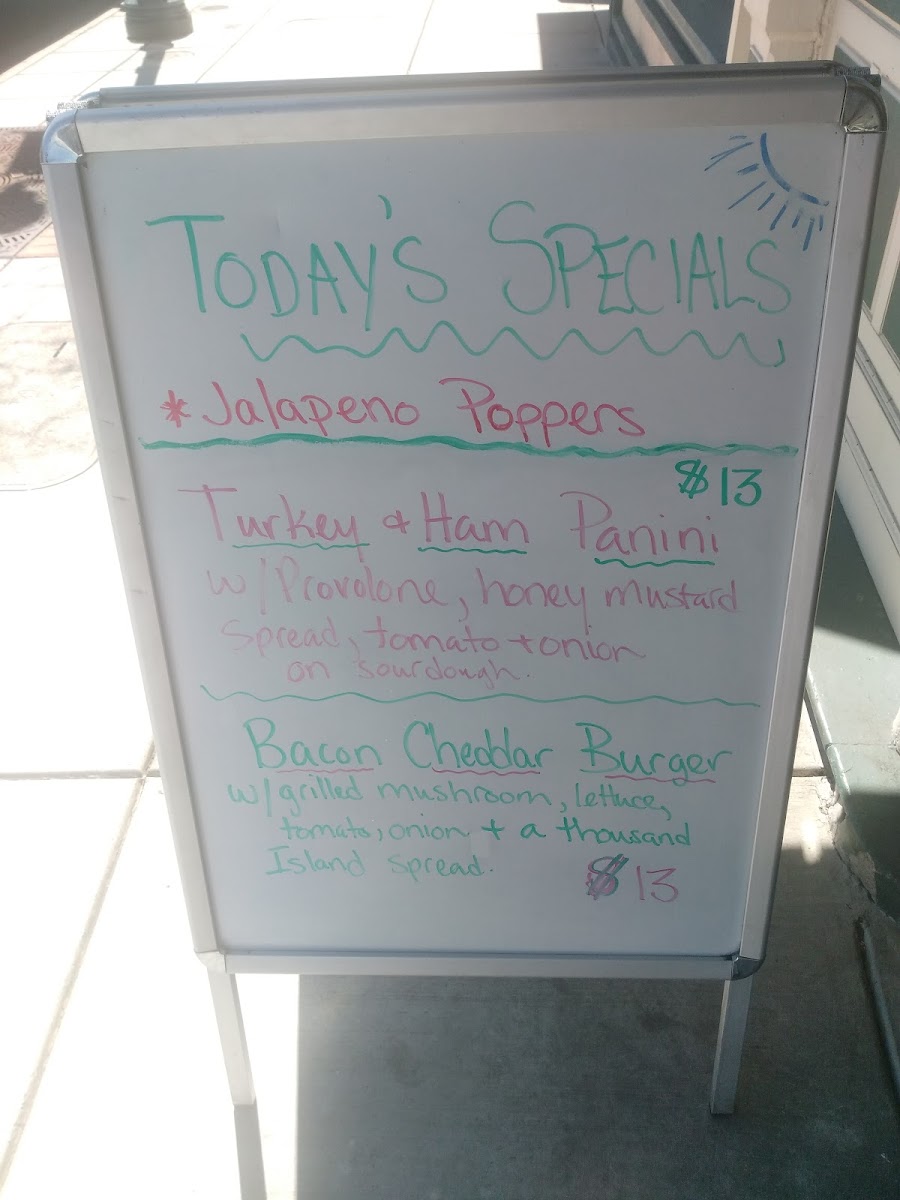 Today's Specials
* Jalapeno Poppers
$13
Turkey & Ham Panini
w/ Provolone, honey mustard
Spread, tomato + onion
on sourdough.
Bacon Cheddar Burger
w/ grilled mushroom, lettuce,
tomato, onion + a thousand
Island spread.
$13